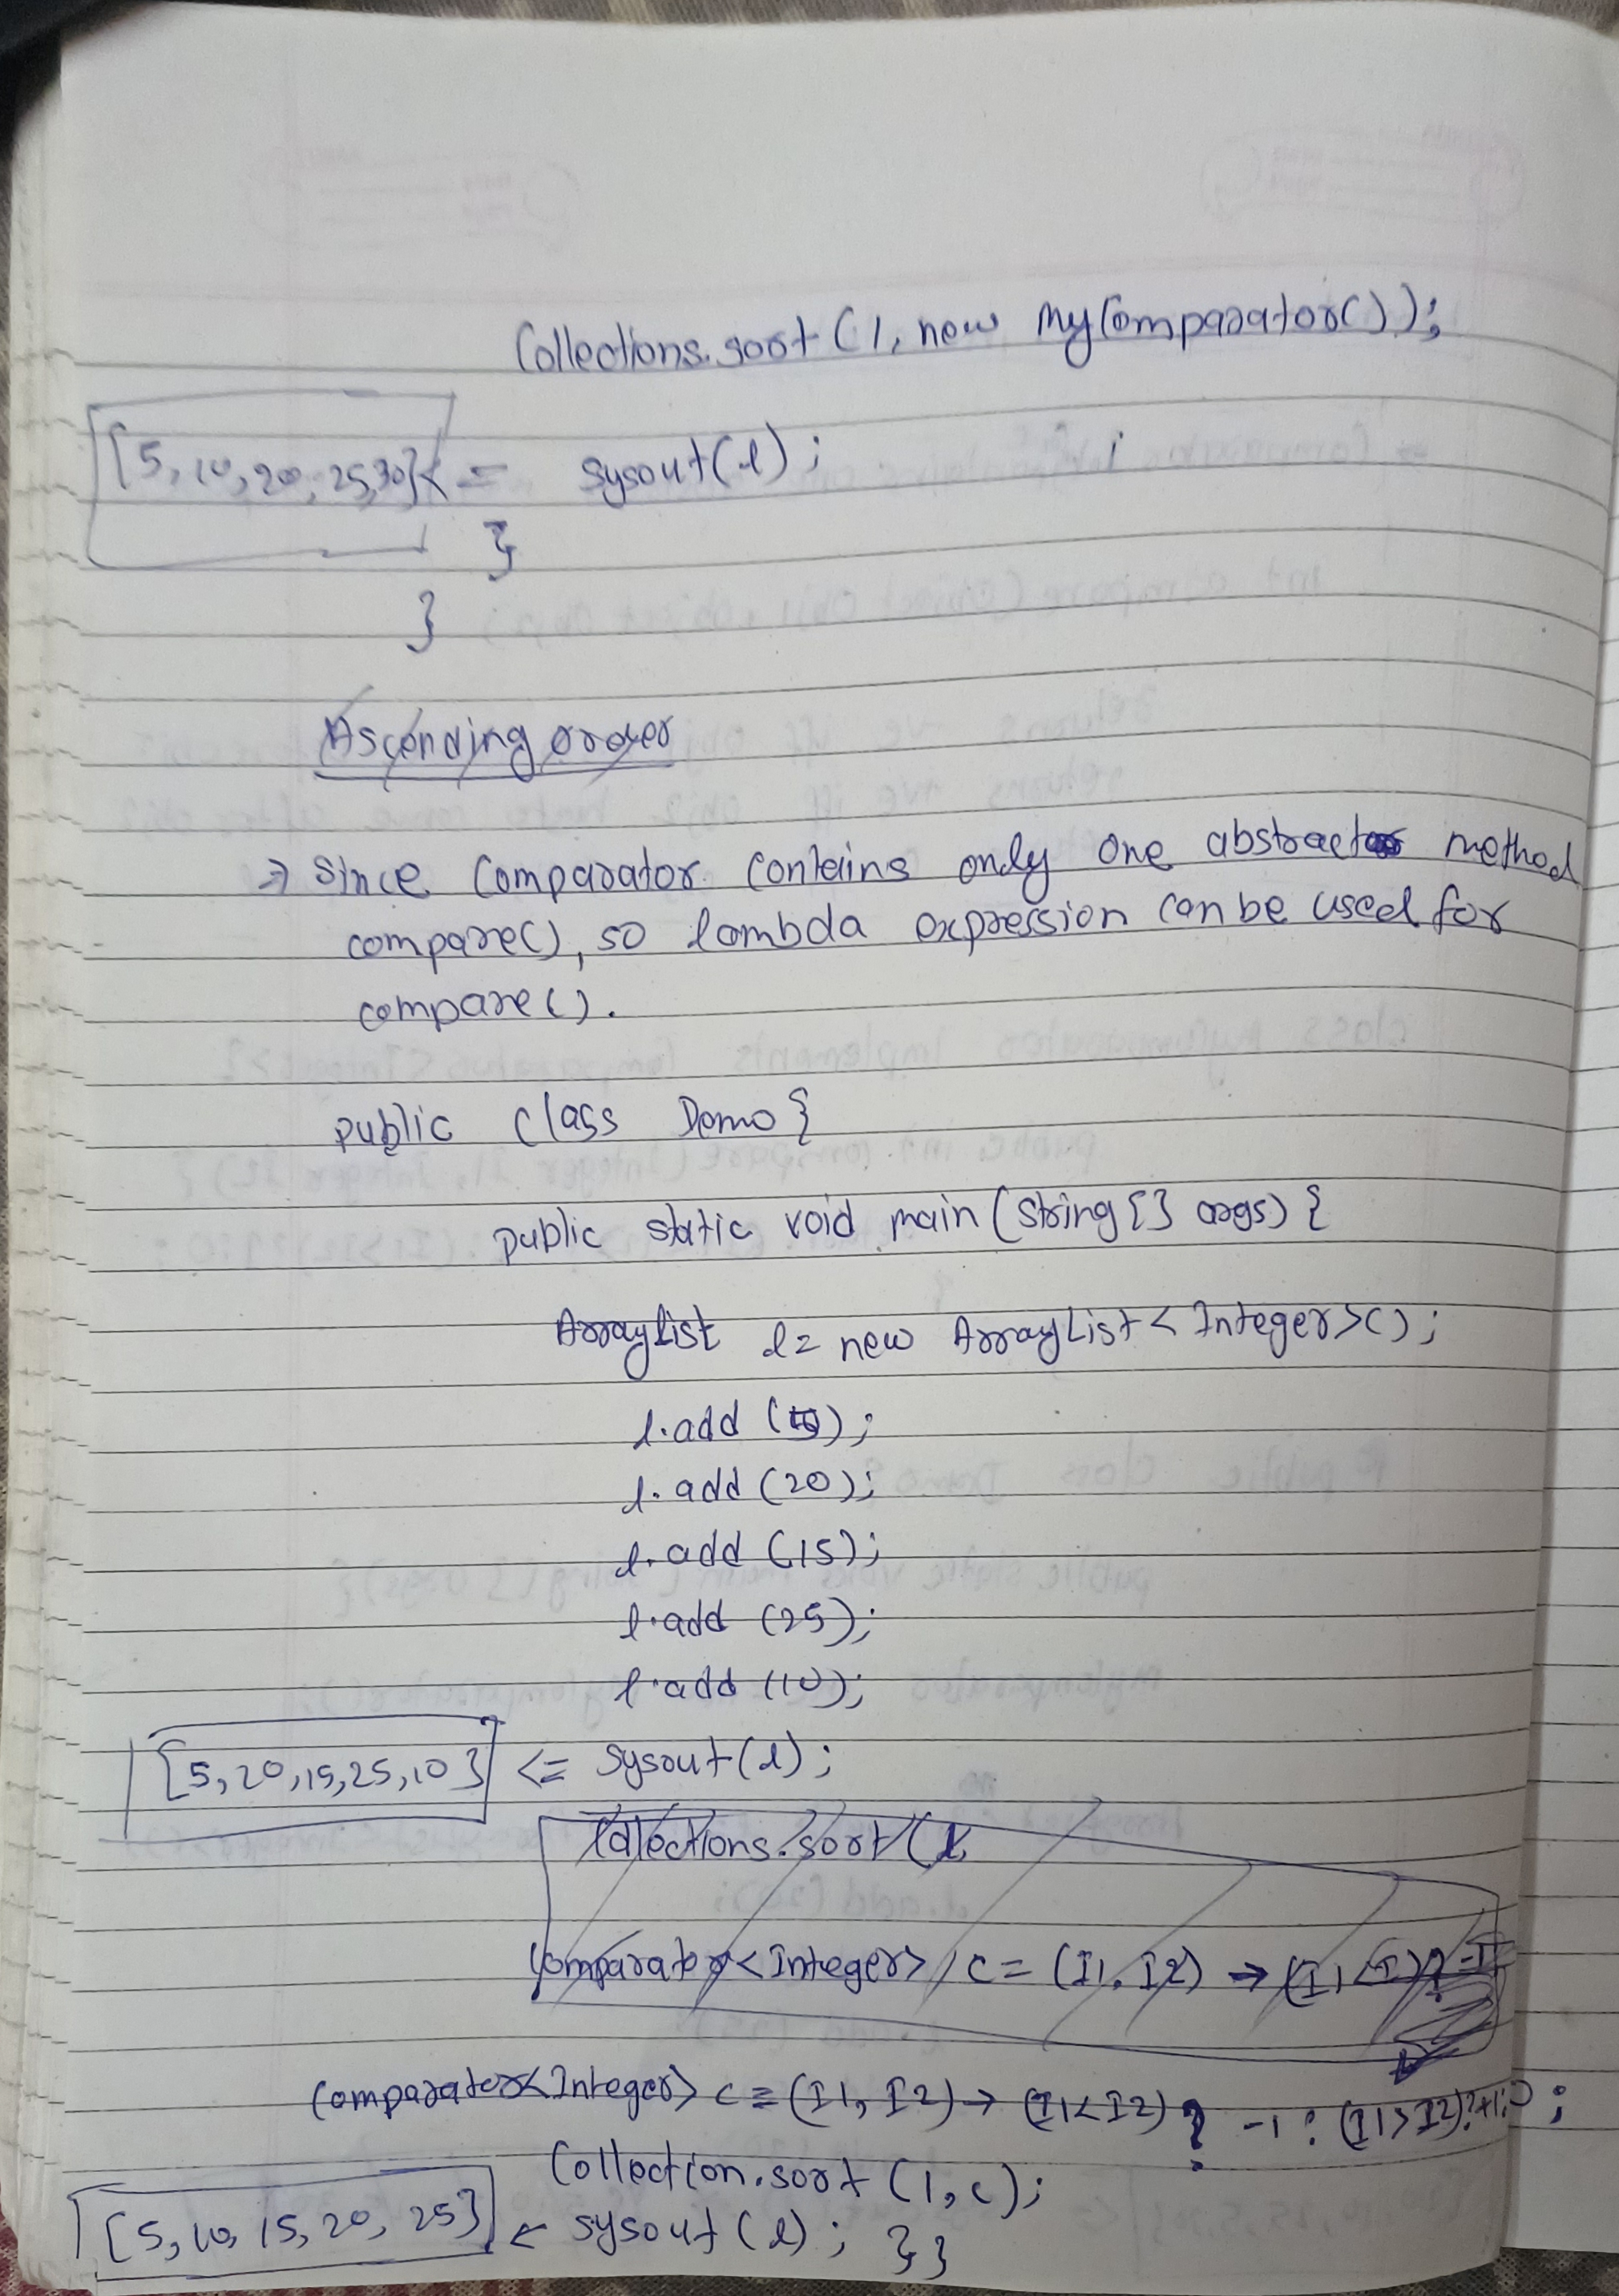 Collections.sort(l, new MyComparator());
[5,10,20,25,30] <= sysout(l);
}
}
Ascending order
→ Since Comparator contains only one abstract method
compare(), so lambda expression can be used for
compare().
public class Demo{
public static void main(String[] args){
ArrayList l= new ArrayList<Integer>();
l.add(5);
l.add(20);
l.add(15);
l.add(25);
l.add(10);
[5,20,15,25,10] <= sysout(l);
Collections.sort(l,
Comparator<Integer> c = (I1, I2) → (I1<I2)? -1
Comparator<Integer> c = (I1, I2) → (I1<I2) ? -1 : (I1>I2)?+1:0 ;
Collection.sort(l,c);
[5,10,15,20,25] < sysout(l); }}